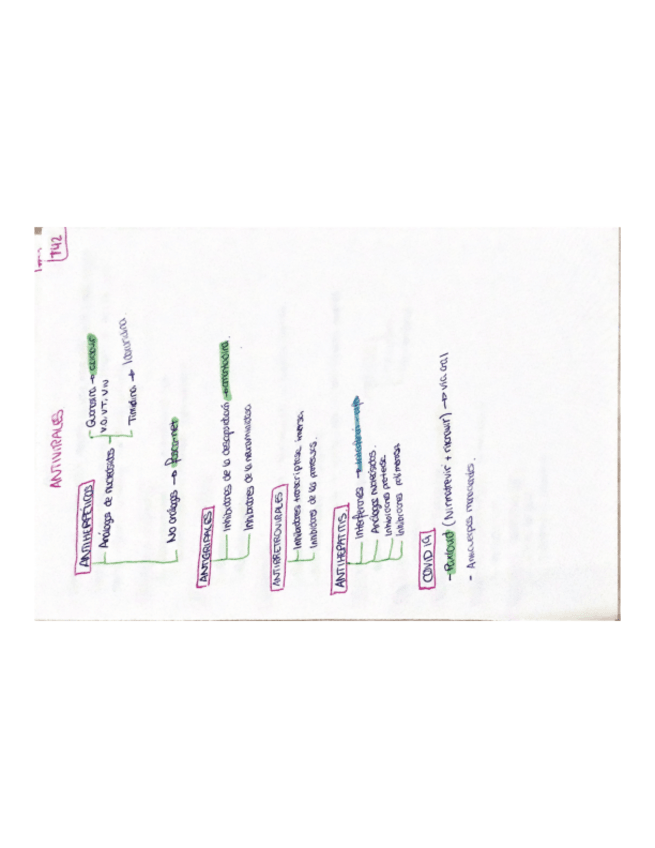 T42
ANTIVIRALES
ANTIHERPÉTICOS
Análogos de nucleósidos
Guanosina → ciclovir
V.O, VT, VIV
Timidina → Idoxuridina
No análogos → foscarnet
ANTIGRIPALES
Inhibidores de la decapsidación → amantadina.
Inhibidores de la neuraminidasa
ANTIRRETROVIRALES
Inhibidores transcriptasa inversa
Inhibidores de la proteasa.
ANTIHEPATITIS
Interferones →
Análogos nucleósidos.
Inhibidores proteasa
Inhibidores polimerasa
COVID 19
- Paxlovid (Nirmatrevir + ritonavir) → vía oral
- Anticuerpos monoclonales.